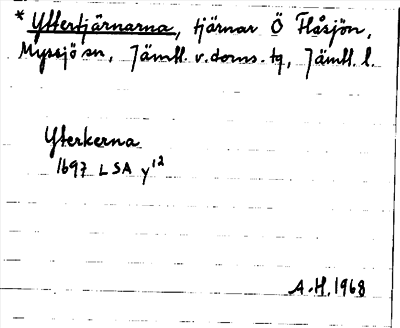 * Yttertjärnarna, tjärnar Ö Flåsjön,
Myssjö sn, Jämtl. v. doms. tg, Jämtl. l.
Ytterkerna
1697 LSA y12
A.H. 1968